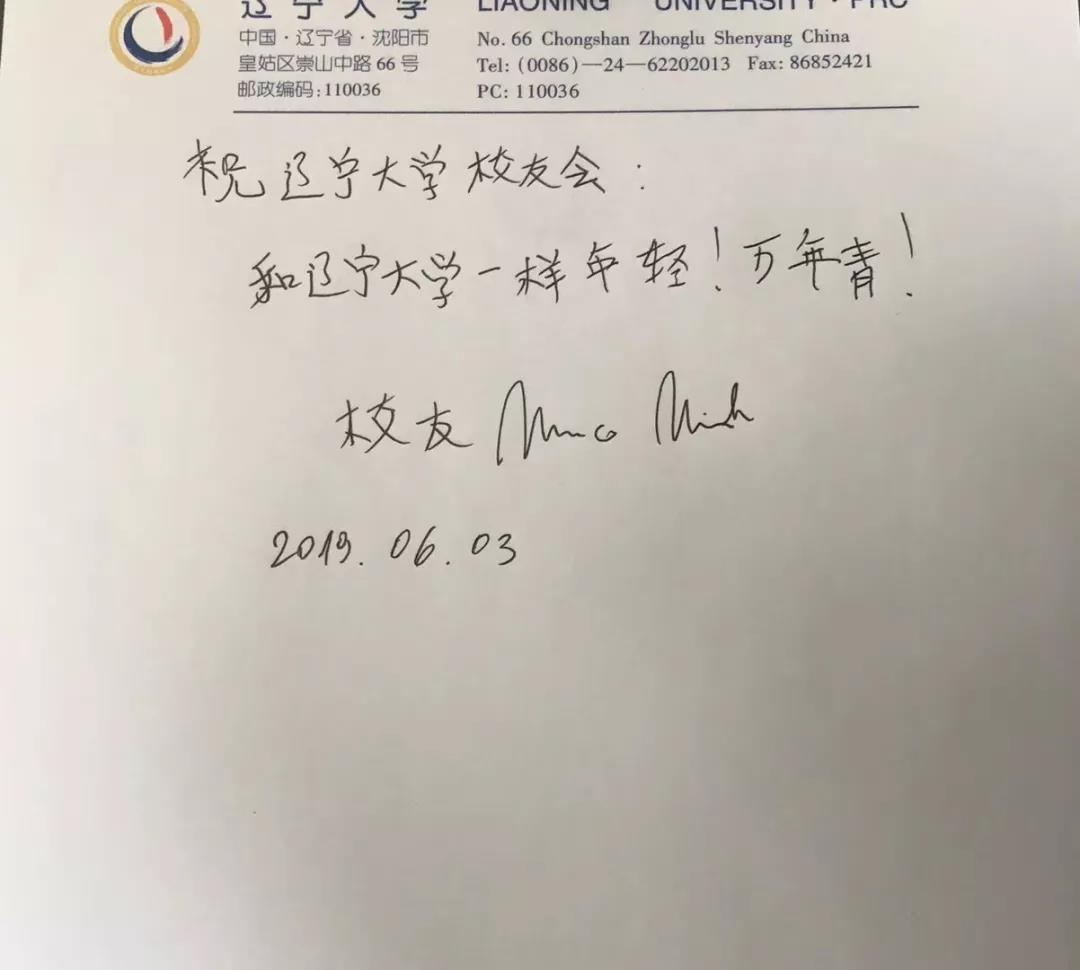 辽宁大学 LIAONING UNIVERSITY · PRC
中国·辽宁省·沈阳市 No. 66 Chongshan Zhonglu Shenyang China
皇姑区崇山中路 66 号 Tel: (0086)—24—62202013 Fax: 86852421
邮政编码:110036 PC: 110036
祝辽宁大学校友会:
和辽宁大学一样年轻!万年青!
校友
2019.06.03